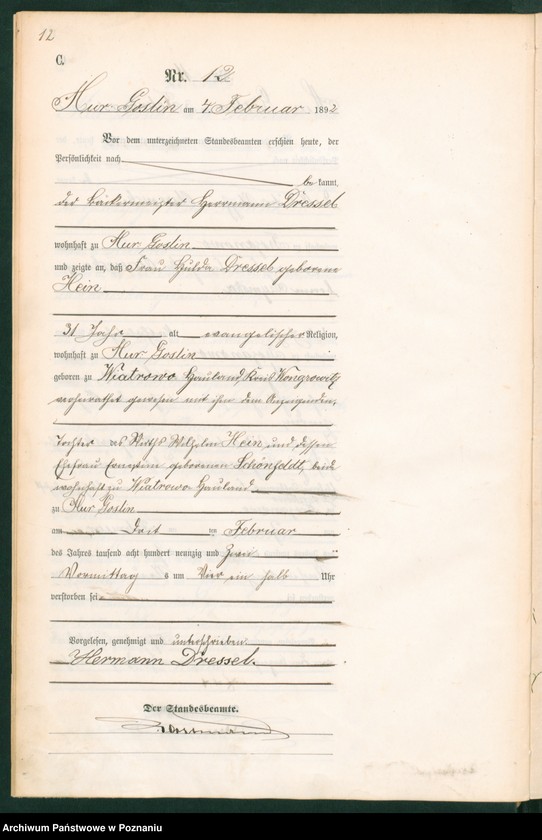 12
C.
Nr. 12
Mur Goslin am 4 Februar 1892
Vor dem unterzeichneten Standesbeamten erschien heute, der
Persönlichkeit nach
be kannt,
der Bäckermeister Herrmann Dressel
wohnhaft zu Mur Goslin
und zeigte an, daß Frau Hulda Dressel geborene
Hein
31 Jahr alt evangelischer Religion,
wohnhaft zu Mur Goslin
geboren zu Wiatrowo Hauland Kreis Wongrowitz
verheirathet gewesen mit ihm dem Anzeigenden,
Tochter des Wirths Wilhelm Hein und dessen
Ehefrau geborenen Schönfeldt, beide
wohnhaft zu Wiatrowo Hauland
zu Mur Goslin
am Drit ten Februar
des Jahres tausend acht hundert neunzig und Zwei
Vormittag s um Vier ein halb Uhr
verstorben sei
Vorgelesen, genehmigt und unterschrieben.
Hermann Dressel.
Der Standesbeamte.
Archiwum Państwowe w Poznaniu